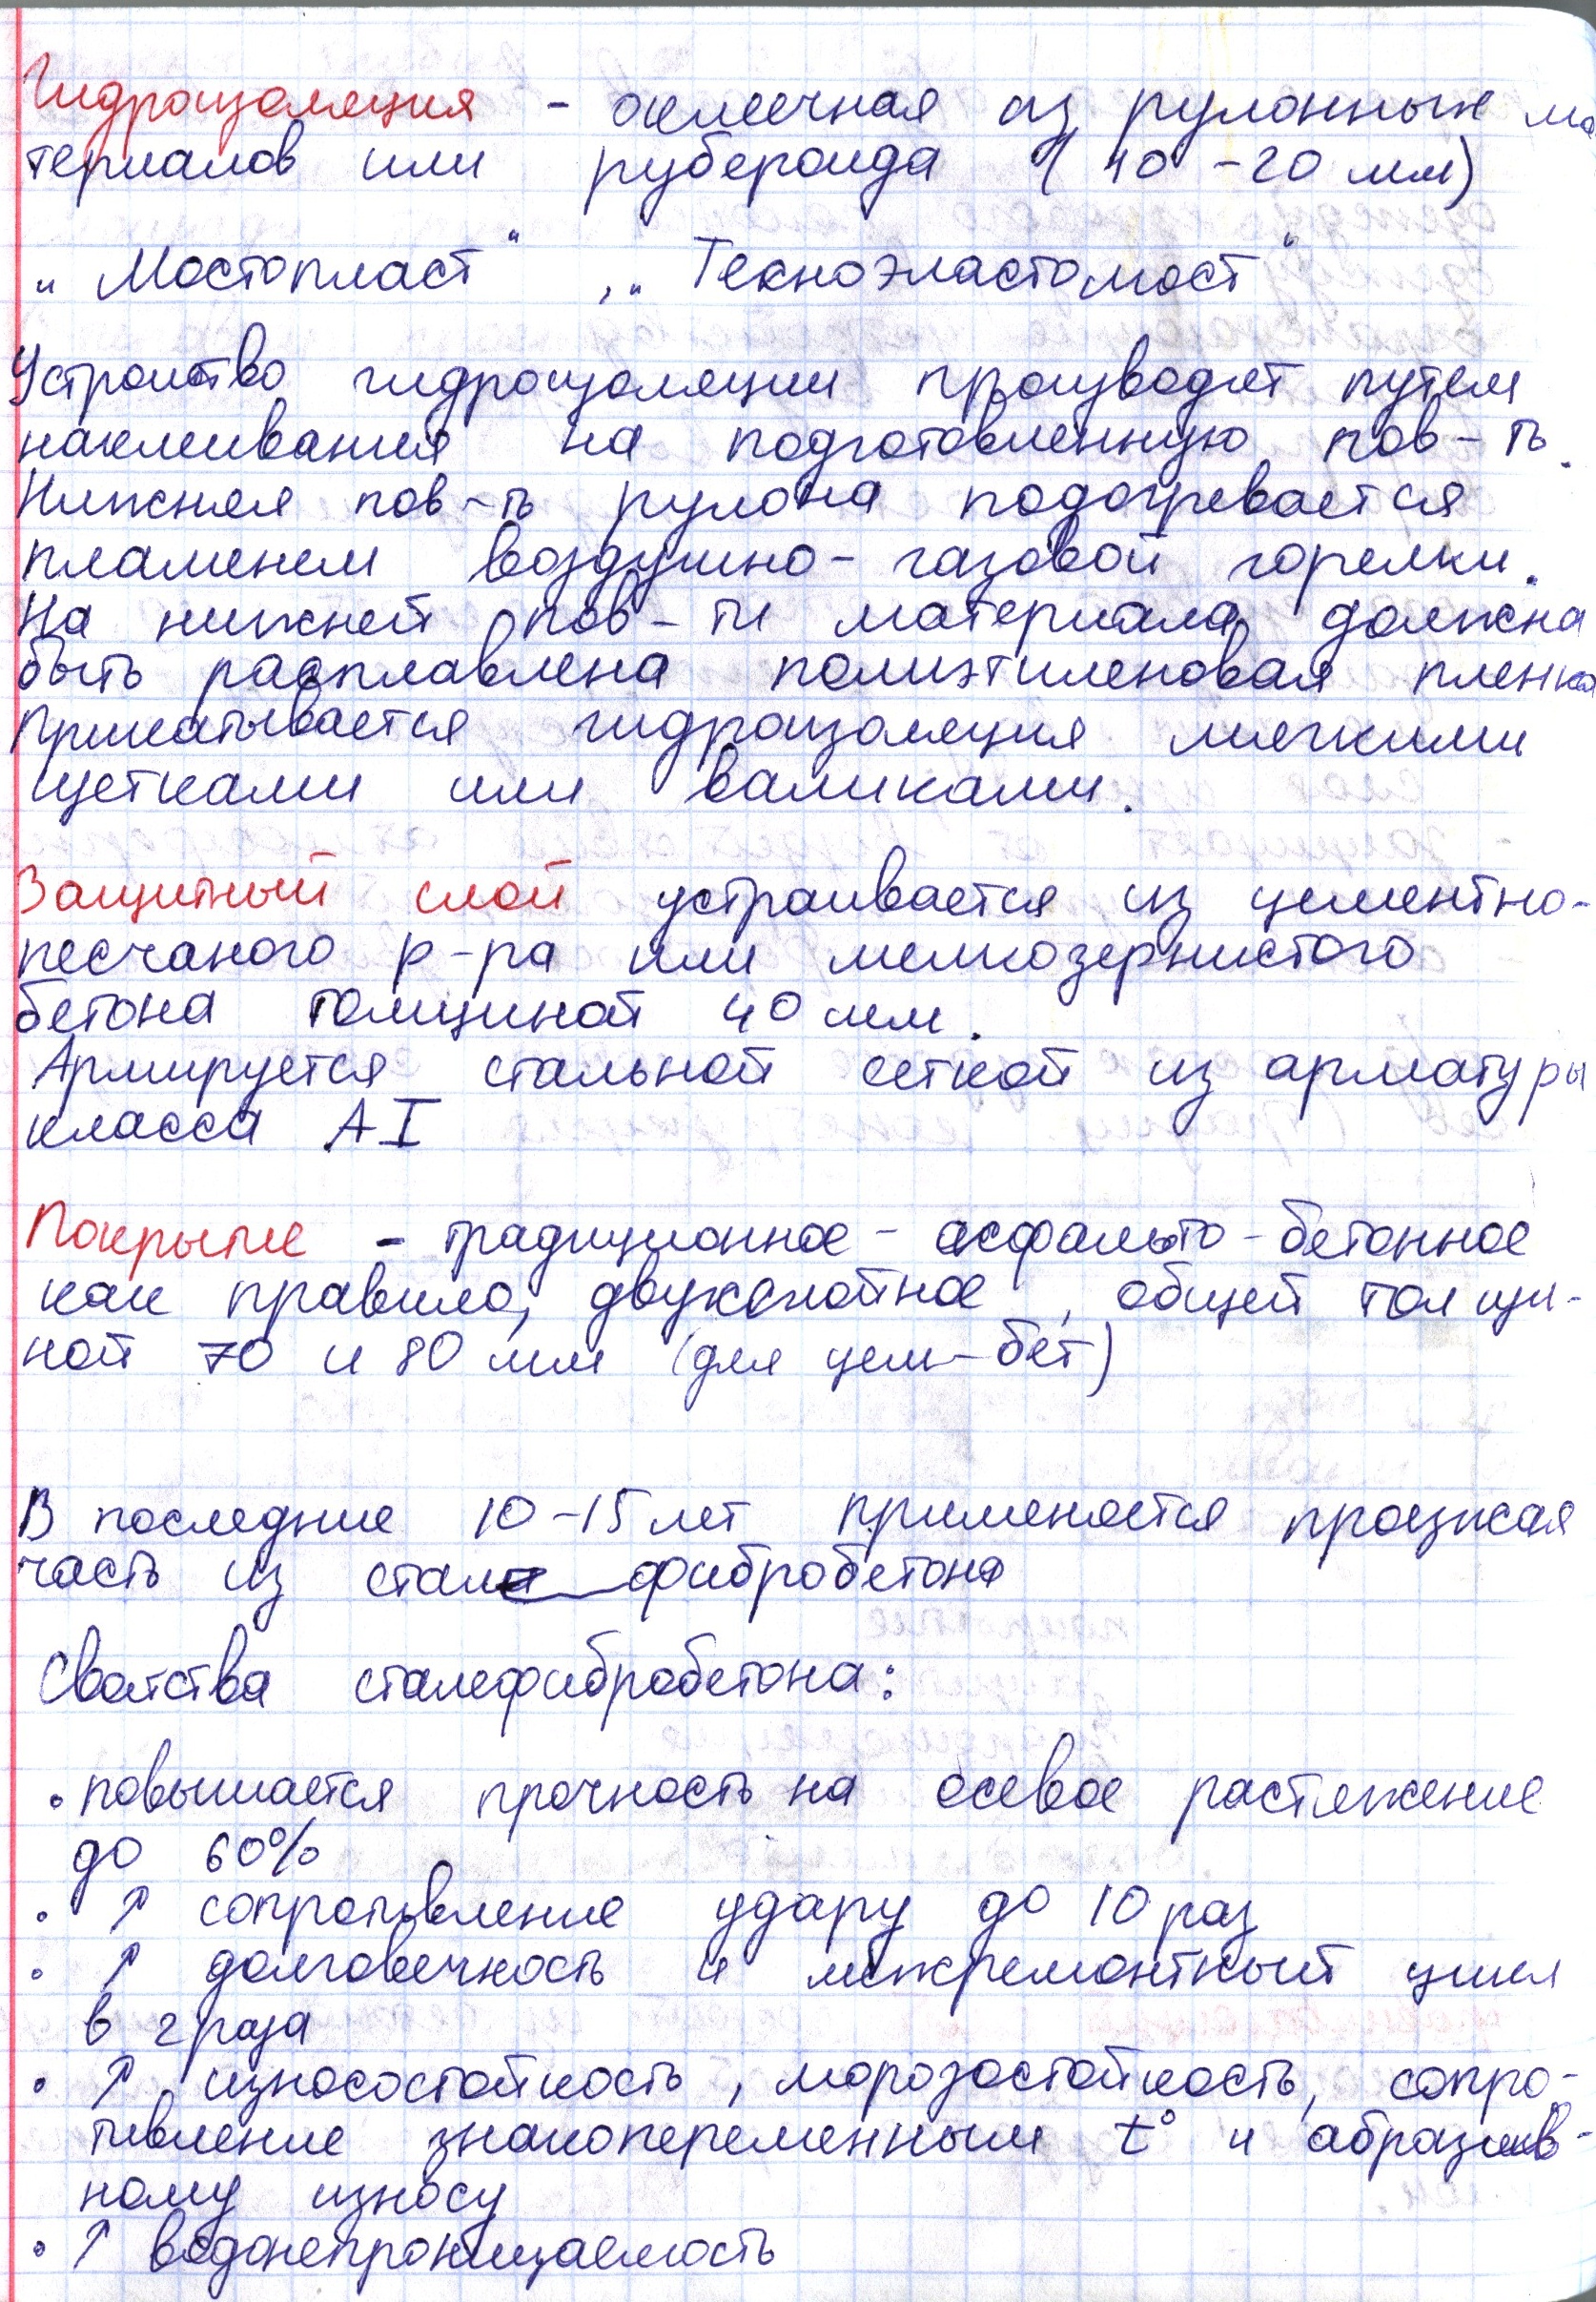 Гидроизоляция - оклеечная из рулонных ма
териалов или рубероида (10-20 мм)
„Мостопласт", „Техноэластомост"
Устройство гидроизоляции производят путем
наклеивания на подготовленную пов-ть.
Нижняя пов-ть рулона подогревается
пламенем воздушно-газовой горелки.
На нижней пов-ти материала должна
быть расплавлена полиэтиленовая пленка
Прикатывается гидроизоляция мягкими
щетками или валиками.
Защитный слой устраивается из цементно-
песчаного р-ра или мелкозернистого
бетона толщиной 40 мм.
Армируется стальной сеткой из арматуры
класса АI
Покрытие - традиционное - асфальто-бетонное
как правило, двухслойное, общей толщи-
ной 70 и 80 мм (для цем-бет)
В последние 10-15 лет применяется проезжая
часть из стале фибробетона
Свойства сталефибробетона:
• повышается прочность на осевое растяжение
до 60%
• ↑ сопротивление удару до 10 раз
• ↑ долговечность и межремонтный цикл
в 2 раза
• ↑ износостойкость, морозостойкость, сопро-
тивление знакопеременным t° и абразив-
ному износу
• ↑ водонепроницаемость